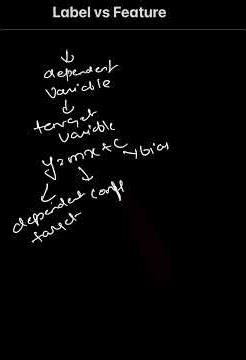 Label vs Feature
dependent
variable
target
variable
y=mx+c
bias
dependent coeff
target